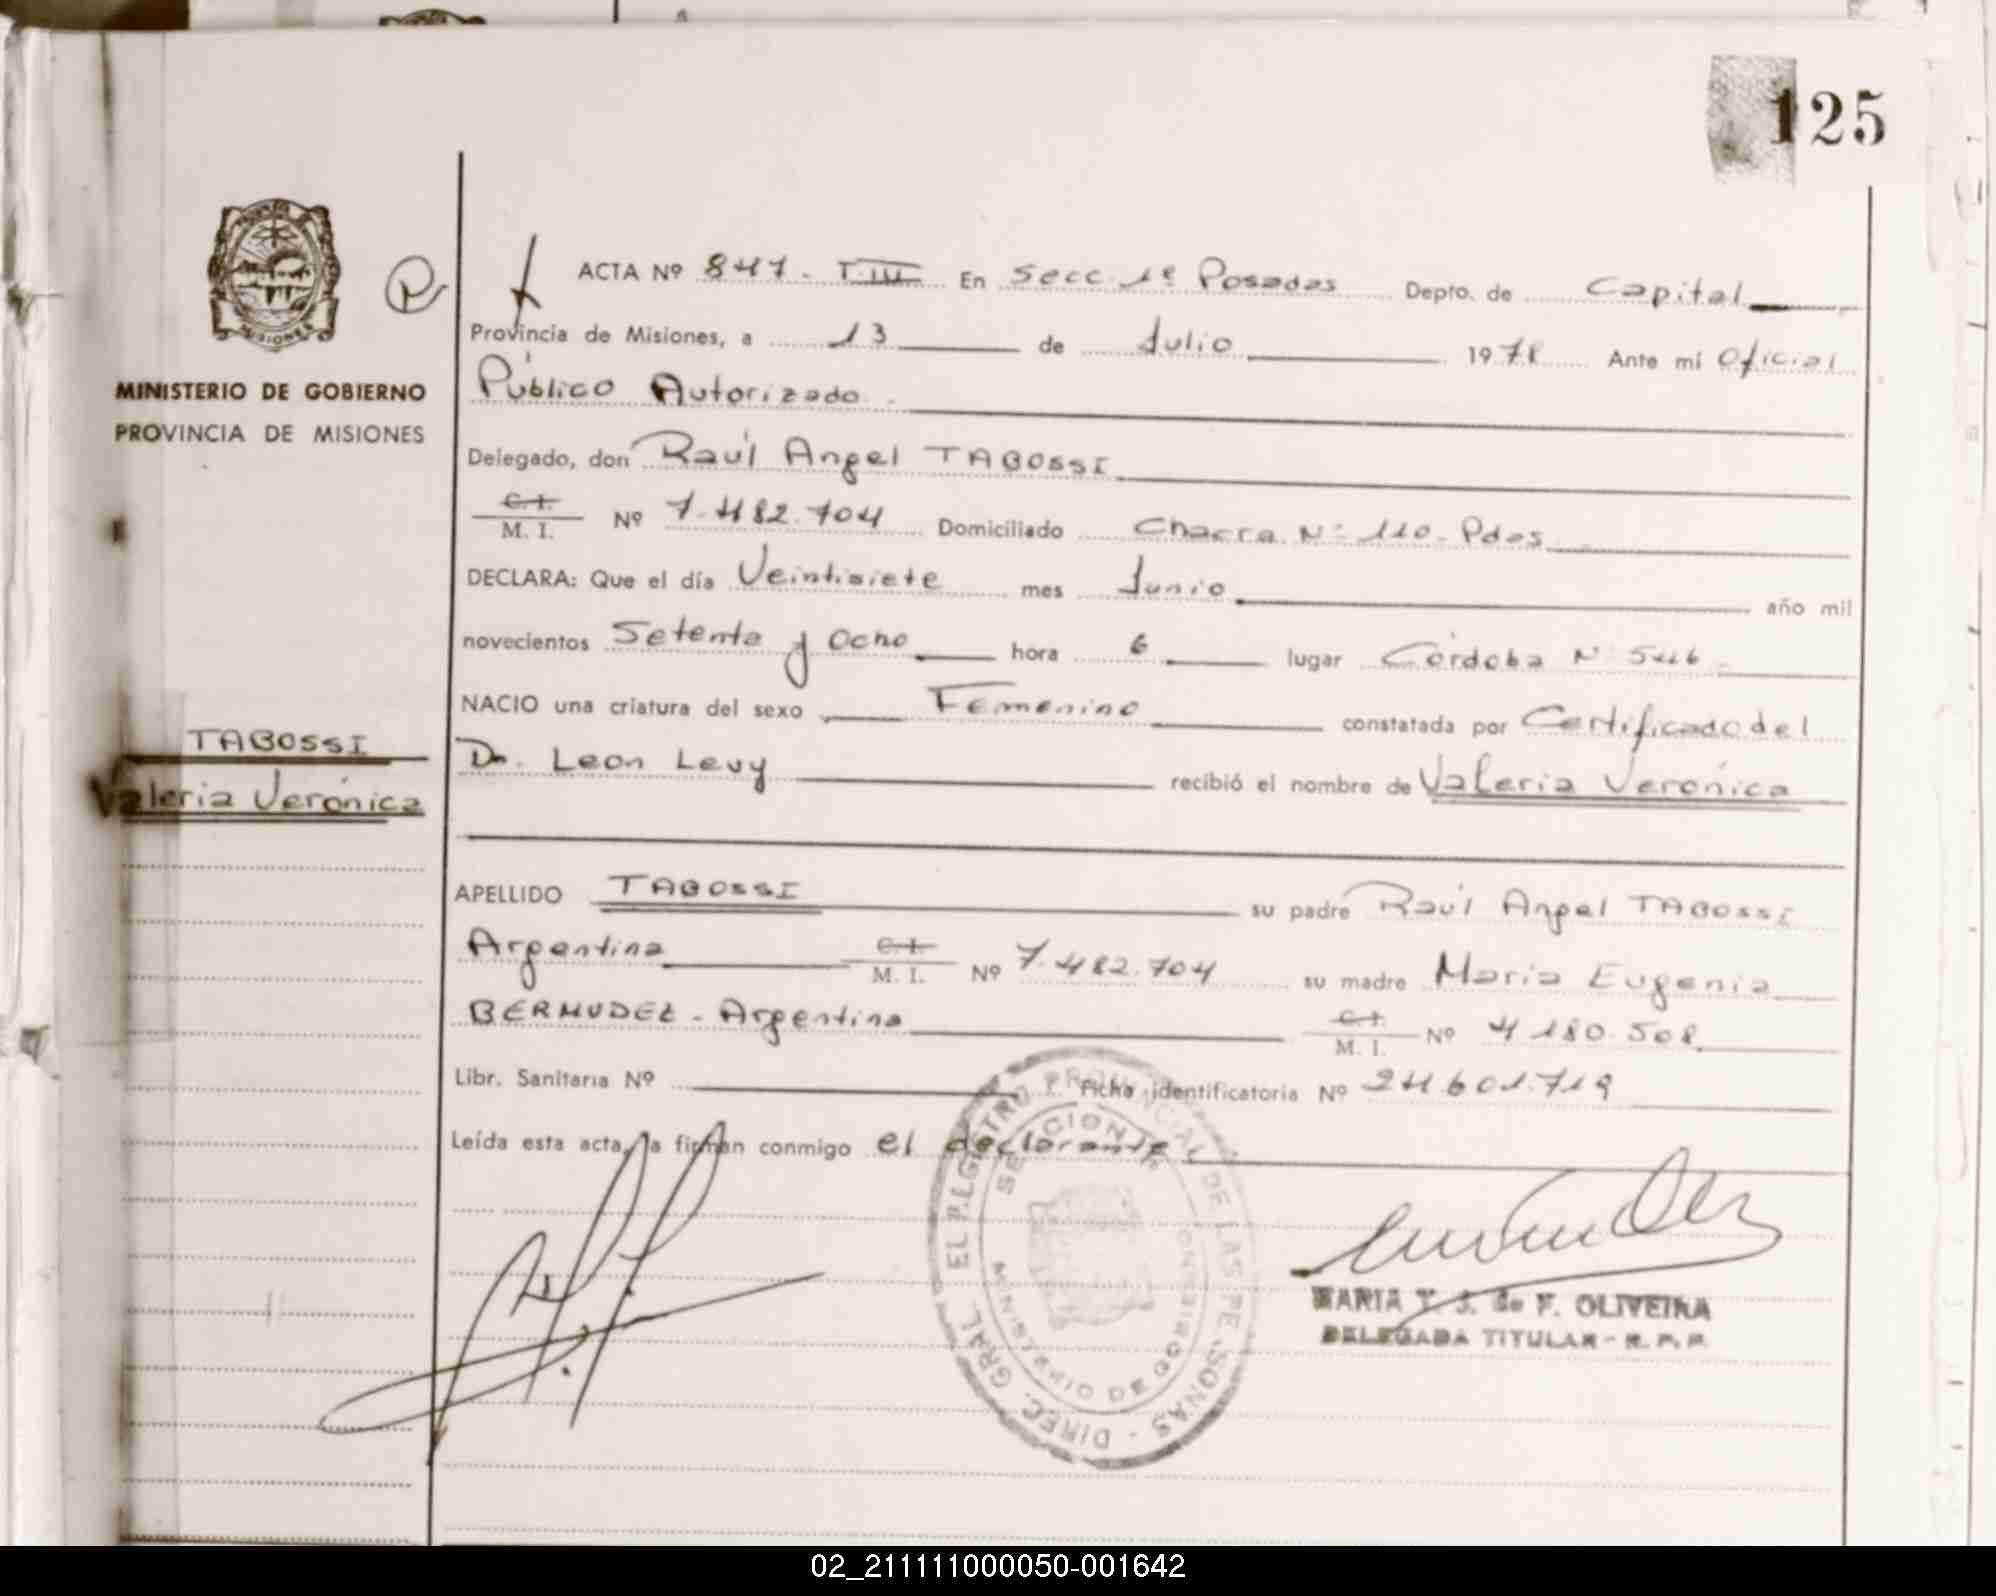 125
MISIONES
MINISTERIO DE GOBIERNO
PROVINCIA DE MISIONES
TABOSSI
Valeria Verónica
ACTA Nº 847 - T III En Secc. 1º Posadas Depto. de Capital
Provincia de Misiones, a 13 de Julio 1978 Ante mí Oficial
Público Autorizado.
Delegado, don Raúl Angel TABOSSI
C. I.
M. I. Nº 7.482.704 Domiciliado Chacra Nº 110 - Pdas
DECLARA: Que el día Veintisiete mes Junio año mil
novecientos Setenta y Ocho hora 6 lugar Córdoba Nº 546
NACIO una criatura del sexo Femenino constatada por Certificado del
Dr. Leon Levy recibió el nombre de Valeria Verónica
APELLIDO TABOSSI su padre Raúl Angel TABOSSI
Argentina C. I. M. I. Nº 7.482.704 su madre Maria Eugenia
BERMUDEZ - Argentina C. I. M. I. Nº 4 180.508
Libr. Sanitaria Nº Ficha identificatoria Nº 24601.719
Leída esta acta, la firman conmigo el declarante
DIREC. GRAL. DEL REGISTRO PROVINCIAL DE LAS PERSONAS -
SECCION
MINISTERIO DE GOBIERNO
MARIA T. J. de F. OLIVEIRA
DELEGADA TITULAR - R. P. P.
02_211111000050-001642